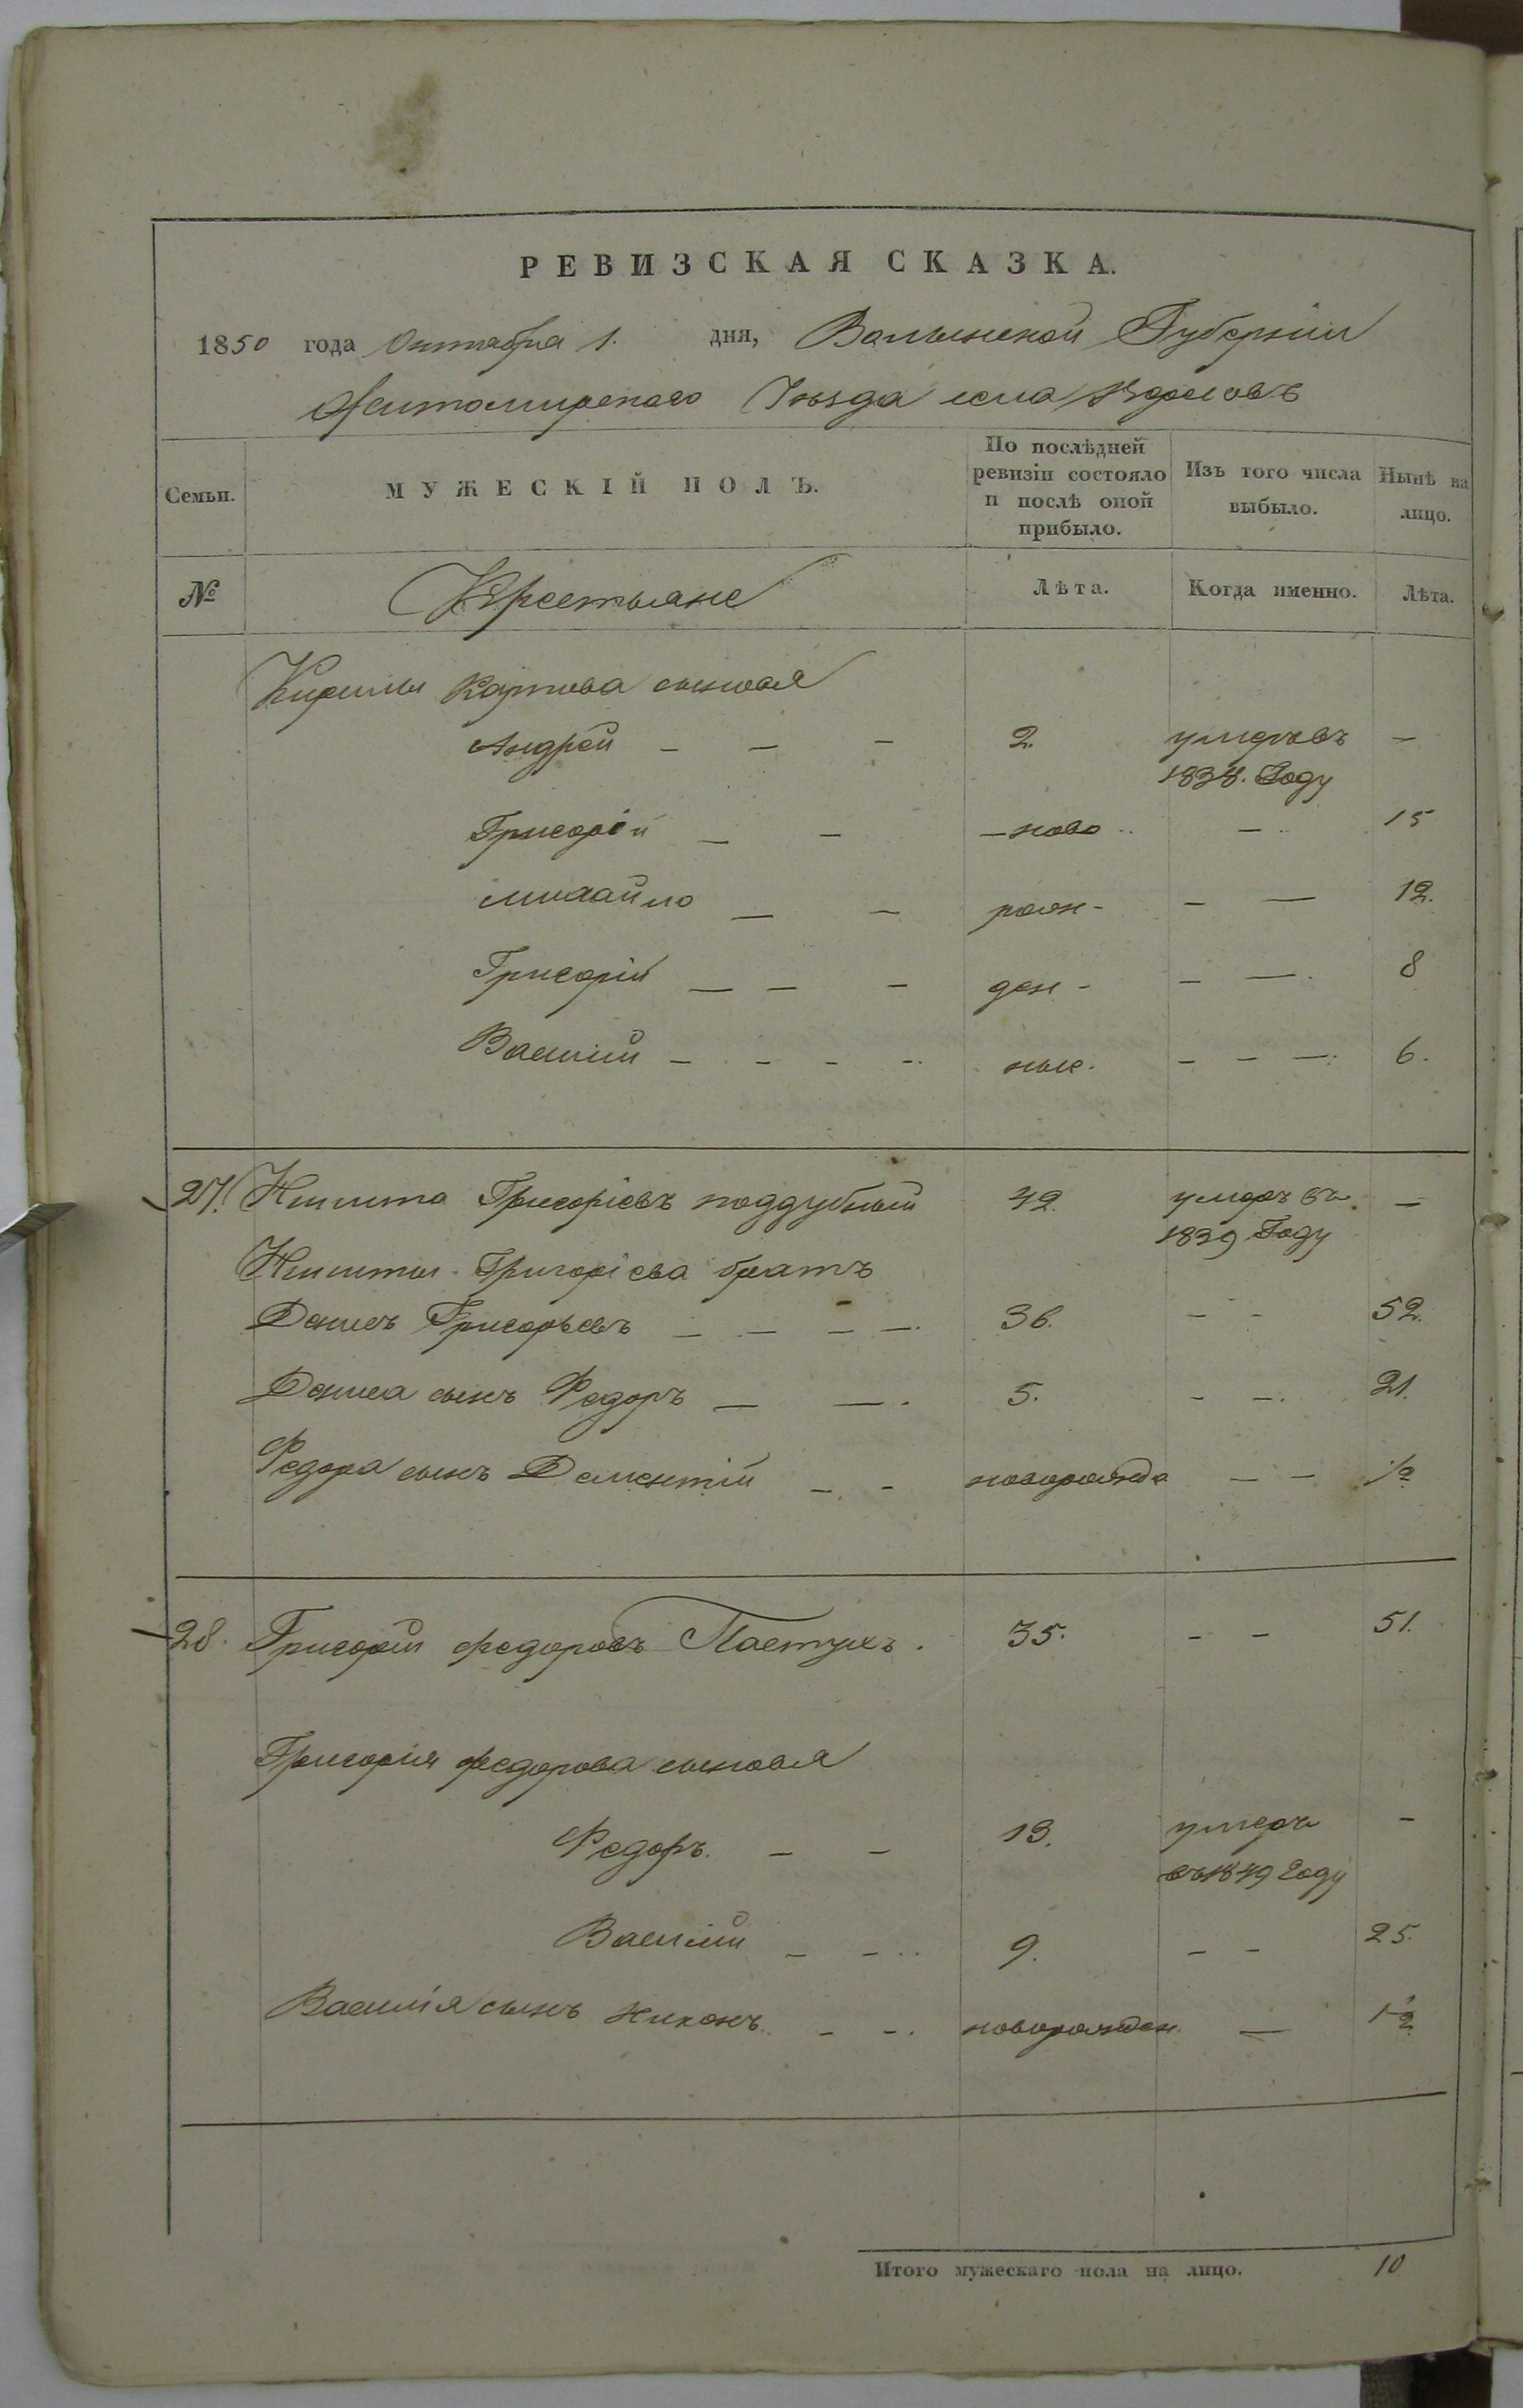 РЕВИЗСКАЯ СКАЗКА.
1850 года Октября 1. дня, Волынской Губернiи
Житомирскаго Уѣзда села
Семьи. МУЖЕСКIЙ ПОЛЪ. По послѣдней ревизiи состояло и послѣ оной прибыло. Изъ того числа выбыло. Нынѣ на лицо.
№ Крестьяне Лѣта. Когда именно. Лѣта.
Кирилы Карпова сыновья
Андрей — — — 2. умеръ въ —
1838. Году
Григорiй — — — ново — 15
Михайло — — рож- — — 12.
Григорiй — — — ден- — — 8
Василiй — — — — ные. — — — 6.
27. Никита Григорiевъ поддубный 42. умеръ въ —
1839 Году
Никиты Григорiева братъ
Данилъ Григорьевъ — — — — 36. — — 52.
Данила сынъ Федоръ — — 5. — — 21.
Федора сынъ Дементiй — — новорожде — — ½
28. Григорiй Федоровъ Пастухъ. 35. — — 51.
Григорiя Федорова сыновья
Федоръ. — — 13. умеръ —
въ 1849 Году
Василiй — — 9. — — 25.
Василiя сынъ Никонъ — — новорожден. — 1½
Итого мужескаго пола на лицо. 10